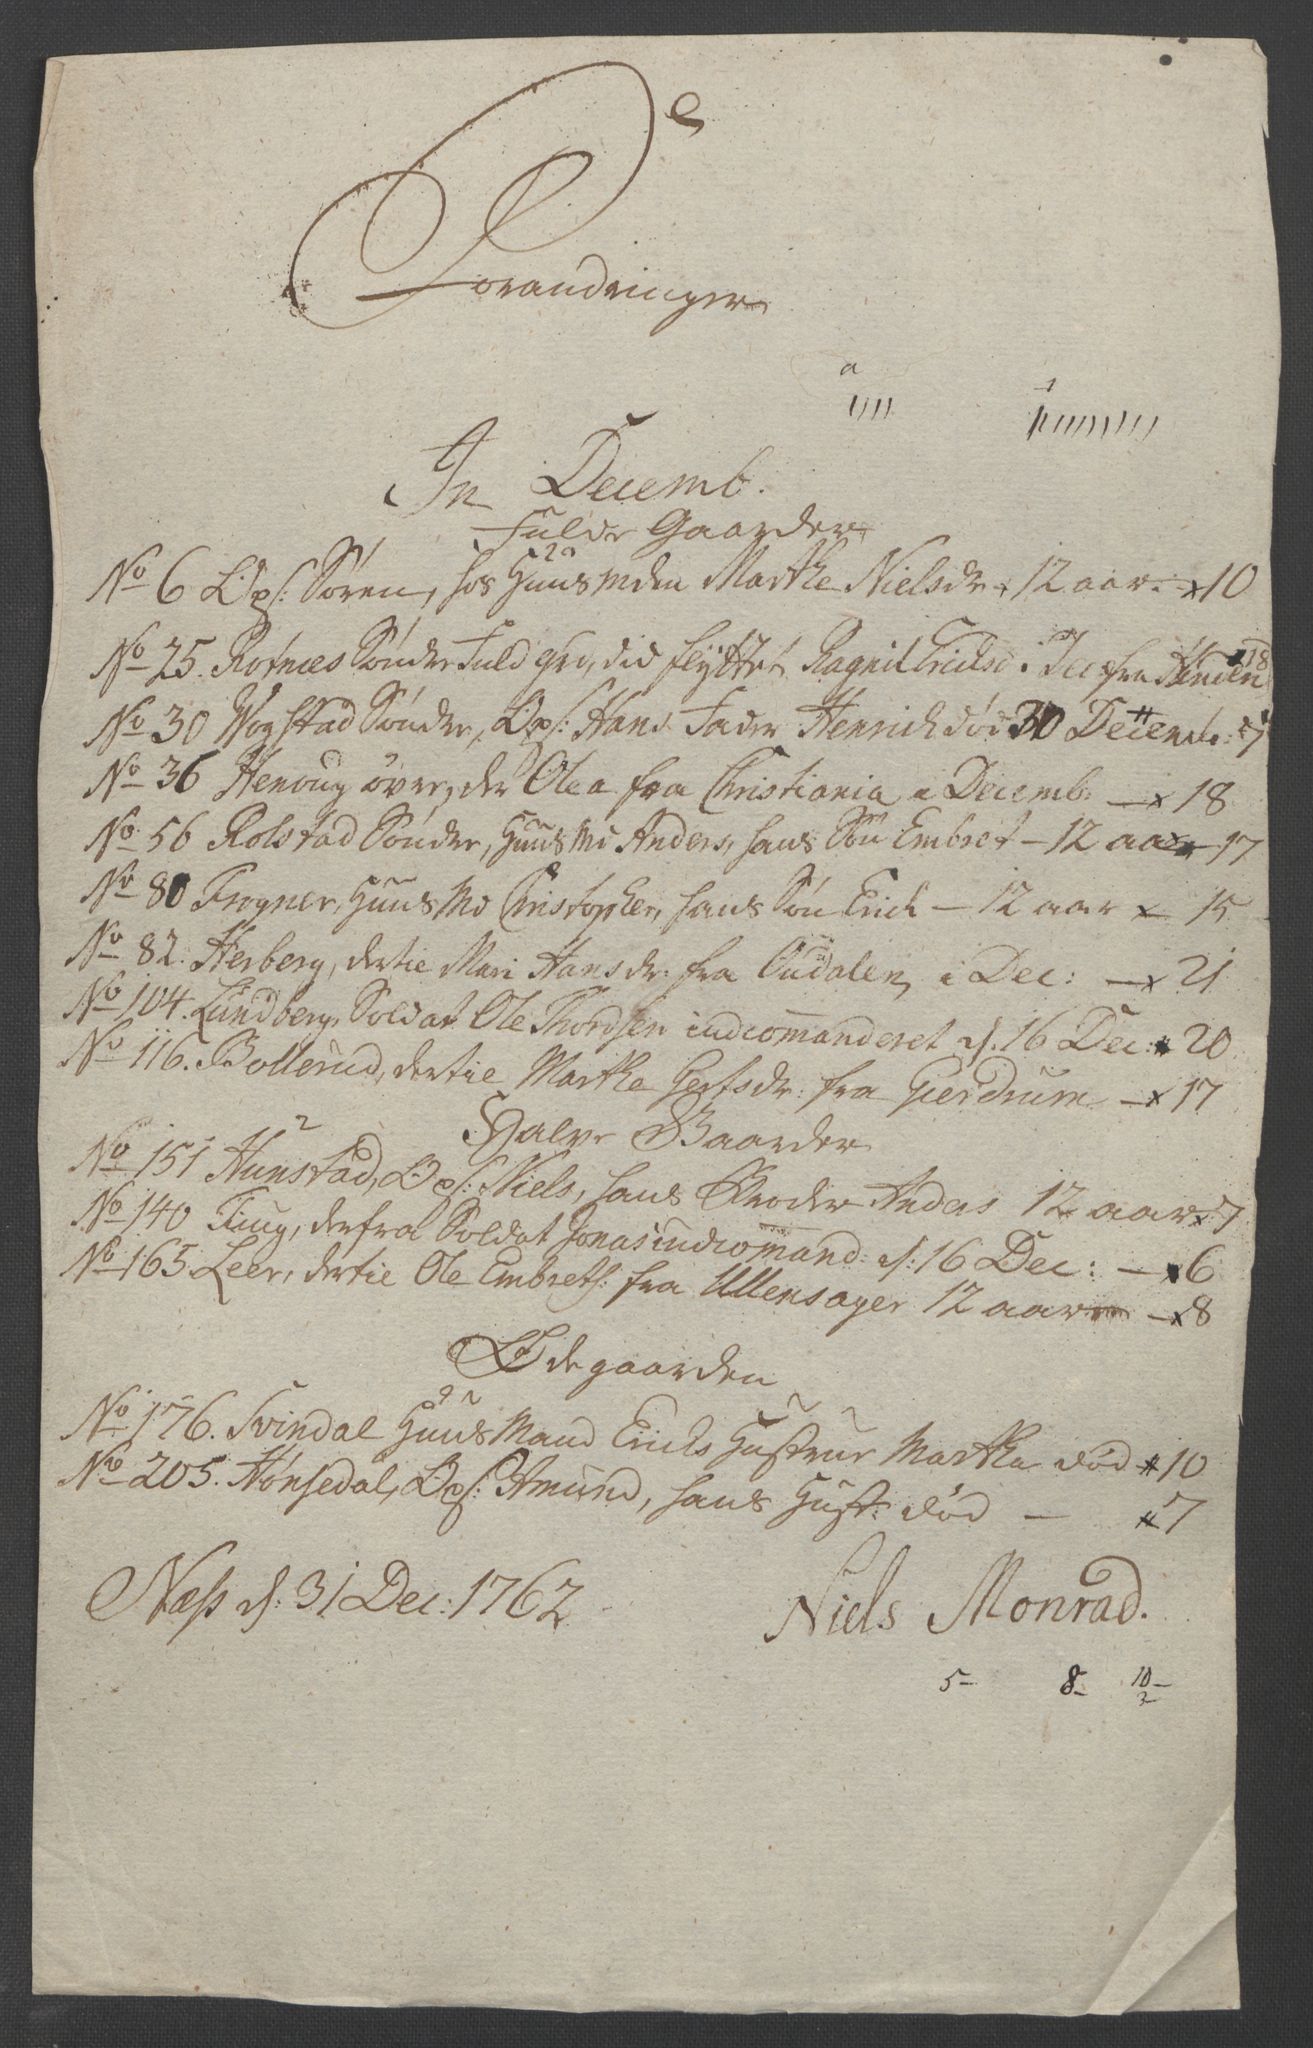 Forandringer
a
1
In Decemb.
Fulde Gaarder
No 6 Ops: Sören, hos Huusmden Marthe Nielsdr 12 aar. x 10
No 25. Rotnæs Söndre Fuld grd, did flyttet Ragnil Erichsd i Dec fra 18
No 30 Wogstad Söndre, Ops: Hans Fader Henrich död 30 Decemb: 7
No 36 Henoug övre, der Olea fra Christiania i Decemb. – x 18
No 56 Rolstad Söndre, Huusmd Anders, hans Sön Embret – 12 aar x 17
No 80 Frogner, Huusmd Christopher, hans Sön Erich – 12 aar x – 15
No 82. Herberg, dertil Mari Hansdr: fra Oudalen, i Dec: – x 21
No 104. Lundberg, Soldat Ole Thordsen indcommanderet d. 16 Dec: 20
No 116. Bollerud, dertil Marthe Gertsdr: fra Gierdrum – x 17
Halve Gaarder
2
No 151 Hunstad, Ops: Niels, hans Broder Anders 12 aar x 7
No 140 Ting, derfra Soldat Jonas indcommand: d: 16 Dec: – x 6
No 165 Leer, dertil Ole Embrets: fra Ullensager 12 aar – x 8
Ödegaarden
No 176. Svindal Huusmand Erichs Hustrue Marthe död 10
No 205. Hönsedal, Ops: Amund, hans Hust: död – 7
Næss d: 31 Dec: 1762
Niels Monrad.
5– 8– 10–
3–